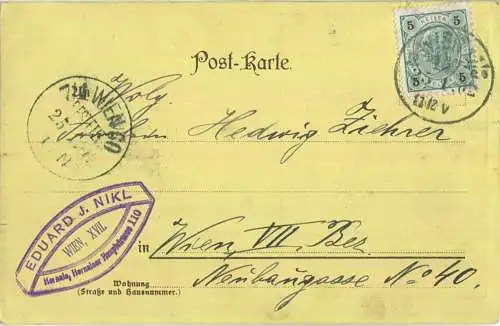 5 HELLER 5
5 5
Post-Karte.
Wolg.
Fräulein Hedwig Ziehrer
WIEN
25
N
12 V
EDUARD J. NIKL
WIEN, XVII.
Hernals, Hernalser Hauptstrasse 110
in Wien, VII. Bez.
Neubaugasse No 40.
Wohnung
(Straße und Hausnummer.)